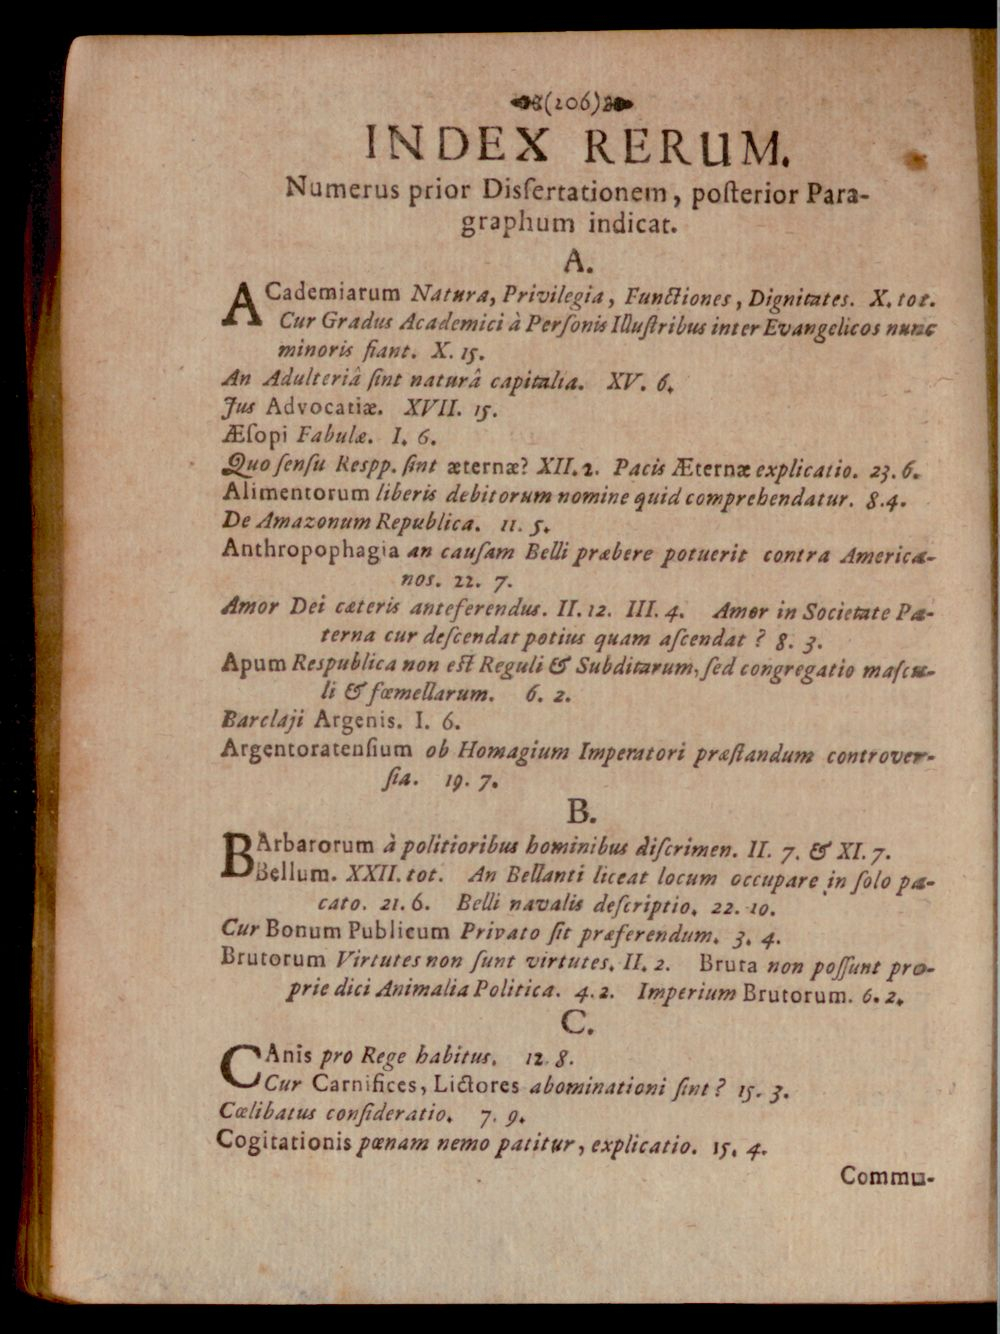 (206)
INDEX RERUM.
Numerus prior Disſertationem, poſterior Para-
graphum indicat.
A.
ACademiarum Natura, Privilegia, Functiones, Dignitates. X. tot.
Cur Gradus Academici à Perſonis Illuſtribus inter Evangelicos nunc
minoris fiant. X. 15.
An Adulteriâ ſint naturâ capitalia. XV. 6.
Jus Advocatiæ. XVII. 15.
Æſopi Fabulæ. I. 6.
Quo ſenſu Respp. ſint æternæ? XII. 2. Pacis Æternæ explicatio. 23. 6.
Alimentorum liberis debitorum nomine quid comprehendatur. 8. 4.
De Amazonum Republica. 11. 5.
Anthropophagia an cauſam Belli præbere potuerit contra America-
nos. 22. 7.
Amor Dei cæteris anteferendus. II. 12. III. 4. Amor in Societate Pa-
terna cur deſcendat potius quam aſcendat ? 8. 3.
Apum Respublica non est Reguli & Subditarum, ſed congregatio maſcu-
li & fœmellarum. 6. 2.
Barclaji Argenis. I. 6.
Argentoratenſium ob Homagium Imperatori præſtandum controver-
ſia. 19. 7.
B.
BArbarorum à politioribus hominibus diſcrimen. II. 7. & XI. 7.
Bellum. XXII. tot. An Bellanti liceat locum occupare in ſolo pa-
cato. 21. 6. Belli navalis deſcriptio. 22. 10.
Cur Bonum Publicum Privato ſit præferendum. 3. 4.
Brutorum Virtutes non ſunt virtutes. II. 2. Bruta non poſſunt pro-
prie dici Animalia Politica. 4. 2. Imperium Brutorum. 6. 2.
C.
CAnis pro Rege habitus. 12. 8.
Cur Carnifices, Lictores abominationi ſint ? 15. 3.
Cœlibatus conſideratio. 7. 9.
Cogitationis pœnam nemo patitur, explicatio. 15. 4.
Commu-